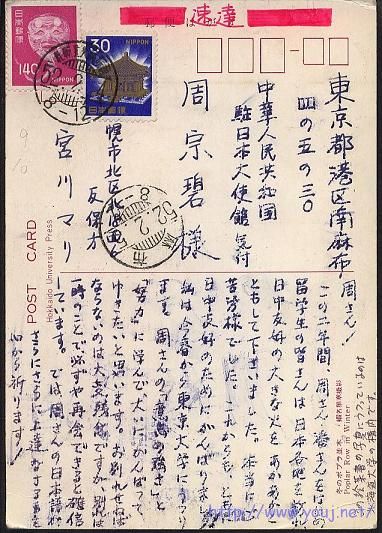 速達
郵便はがき
日本郵便
140
NIPPON
30
NIPPON
日本郵便
東京都港区南麻布
四の五の三〇
中華人民共和国
駐日本大使館 気付
周宗碧様
幌市北区北
宮川マリ
52
POST CARD
Hokkaido University Press
冬のポプラ並木
Poplar Row in Winter
周さん!
この二年間、周さん、潘さんをはじめ
留学生の皆さんは日本各地を
日中友好の大きな火を あかあかと
ともして下さいました。本当に
苦労様でした。これからも、ともに
日中友好のためにがんばりましょう
私は今春から東京大学に
ます。周さんの
「努力」に学んで大いにがんばって
ゆきたいと思います。お別れせねば
ならないのは大変残念ですが、別れは
時のことで必ずや再会できると確信
しています。では周さんの日本語が
さらにさらに上達なさる事を
心から祈ります!
この絵葉書の写真にうつっているのは
北海道大学の構内です。
http://www.youj.net/